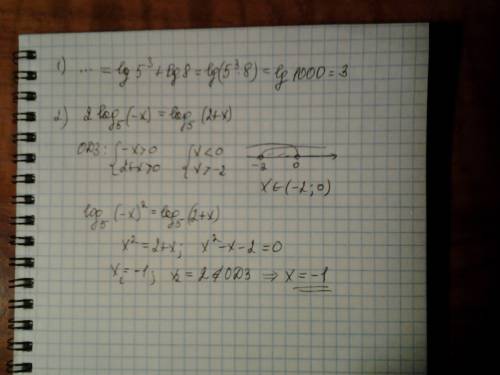 1) ... = lg 5³ + lg 8 = lg(5³·8) = lg 1000 = 3
2) 2 log₅(-x) = log₅(2+x)
ОДЗ: { -x>0 { x<0
{ 2+x>0 { x>-2
-2 0
x∈(-2; 0)
log₅(-x)² = log₅(2+x)
x² = 2+x; x²-x-2=0
x₁=-1; x₂=2∉ОДЗ ⇒ x=-1